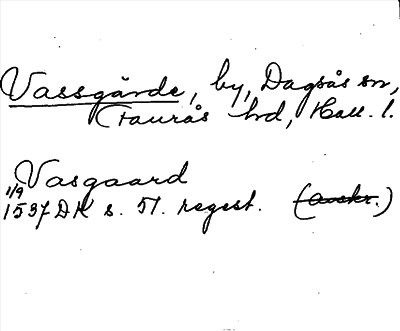 Vassgårde, by, Dagsås sn,
(Faurås hd, Hall. l.
Vasgaard
1/9
1537 DK s. 51. regest. (avskr.)